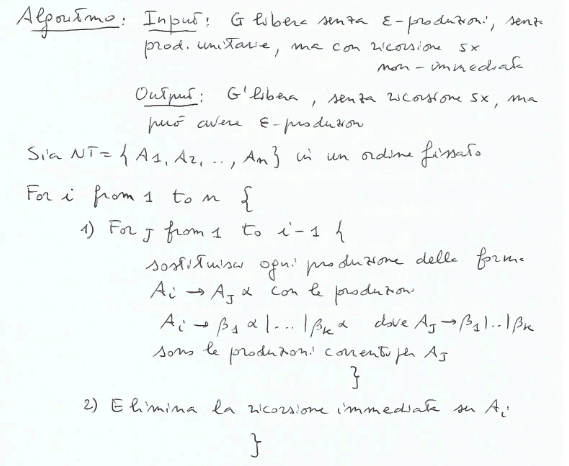 Algoritmo: Input: G libera senza ε-produzioni, senza
prod. unitarie, ma con ricorsione sx
non-immediata
Output: G' libera, senza ricorsione sx, ma
può avere ε-produzioni
Sia NT = { A1, A2, .., An } in un ordine fissato
For i from 1 to n {
1) For J from 1 to i-1 {
sostituisci ogni produzione della forma
Ai → AJ α con le produzioni
Ai → β1 α | ... | βk α dove AJ → β1 | .. | βk
sono le produzioni correnti per AJ
}
2) Elimina la ricorsione immediata su Ai
}